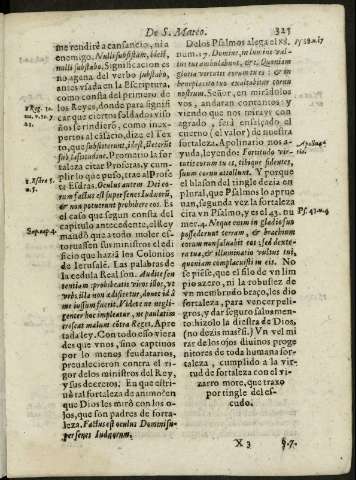 De S. Marco. 325
me rendirè a cansancio, ni a
enemigo. Nulli subsistam, bleiẽ,
nulli substabo. Significacion es
no agena del verbo substabo,
antes vsada en la Escriptura,
como consta del primero de
los Reyes, donde para signifi
car que ciertos soldados viso
ños se rindierõ, como inex-
pertos al cãsacio, dize el Tex
to, que subsisterunt,
sub lassitudine. Promatio la for
taleza citar Profecias, y cum-
plir lo que peso, trae al Profe
te Esdras. Oculus autem Dei eo-
rum factus est super senes Iudæorũ,
& non potuerunt prohibere eos. Es
el caso que segun consta del
capitulo antecedente, el Rey
mandò que a todo moler es-
toruassen sus ministros el edi
ficio que haziã los Colonos
de Ierusalẽ. Las palabras de
la cedula Real son. Audite sen
tentiam: prohibeatis viros illos, vt
vrbs illa non ædificetur, donec id à
me iussum fuerit. Videte ne negli-
genter hoc impleatur, ne paulatim
crescat malum cõtra Reges. Apre
tada ley. Con todo esso viera
des que vnos, sino captiuos
por lo menos feudatarios,
preualecieron contra el ri-
gor de los ministros del Rey,
y sus decretos. En que estri-
uò tal fortaleza de animo? en
que Dios les mirò con los o-
jos, que son padres de forta-
leza. Factus est oculus Domini su-
per senes Iudæorum.
1 Reg. 30.
nu. v. 10. y
21.
1. Esdræ 5.
n. 5.
Sup. cap. 4.
De los Psalmos alega el 88.
num. 17. Domine, in lumine vul-
tus tui ambulabunt, &c. Quoniam
gloria virtutis eorum tu es: & in
beneplacito tuo exaltabitur cornu
nostrum. Señor, en mirãdolos
vos, andaran contentos y
viendo que nos mirays con
agrado, serà ensalçado el
cuerno (el valor) de nuestra
fortaleza. Apolinario nos a-
yuda, leyendo: Fortitudo vir-
tutis eorum tu es, tibique fidentes,
suum cornu attollent. Y porque
el blason del tingle dezia en
plural, que Psalmos lo aprue
uan, segunda vez la fortaleza
cita vn Psalmo, y es el 43. nu
mer. 4. Neque enim in gladio suo
possederunt terram, & brachium
eorum non saluauit eos: sed dexte-
ra tua, & illuminatio vultus tui,
quoniam complacuisti in eis. No
se piẽse, que el filo de vn lim
pio azero, ni la robustez de
vn membrudo braço, les dio
fortaleza, para vencer peli-
gros, y dar seguro salos men-
to: hizolo la diestra de Dios,
(no dezis mas?) Vn vel mi
rar de los ojos diuinos proge
nitores de toda humana for
taleza, cumplido a la vir-
tud de fortaleza con el vi-
zarro more, que traxo
por tingle del es-
cudo.
Ps. 88. n. 17
Psf. 43. n. 4
X 3
§. 7.